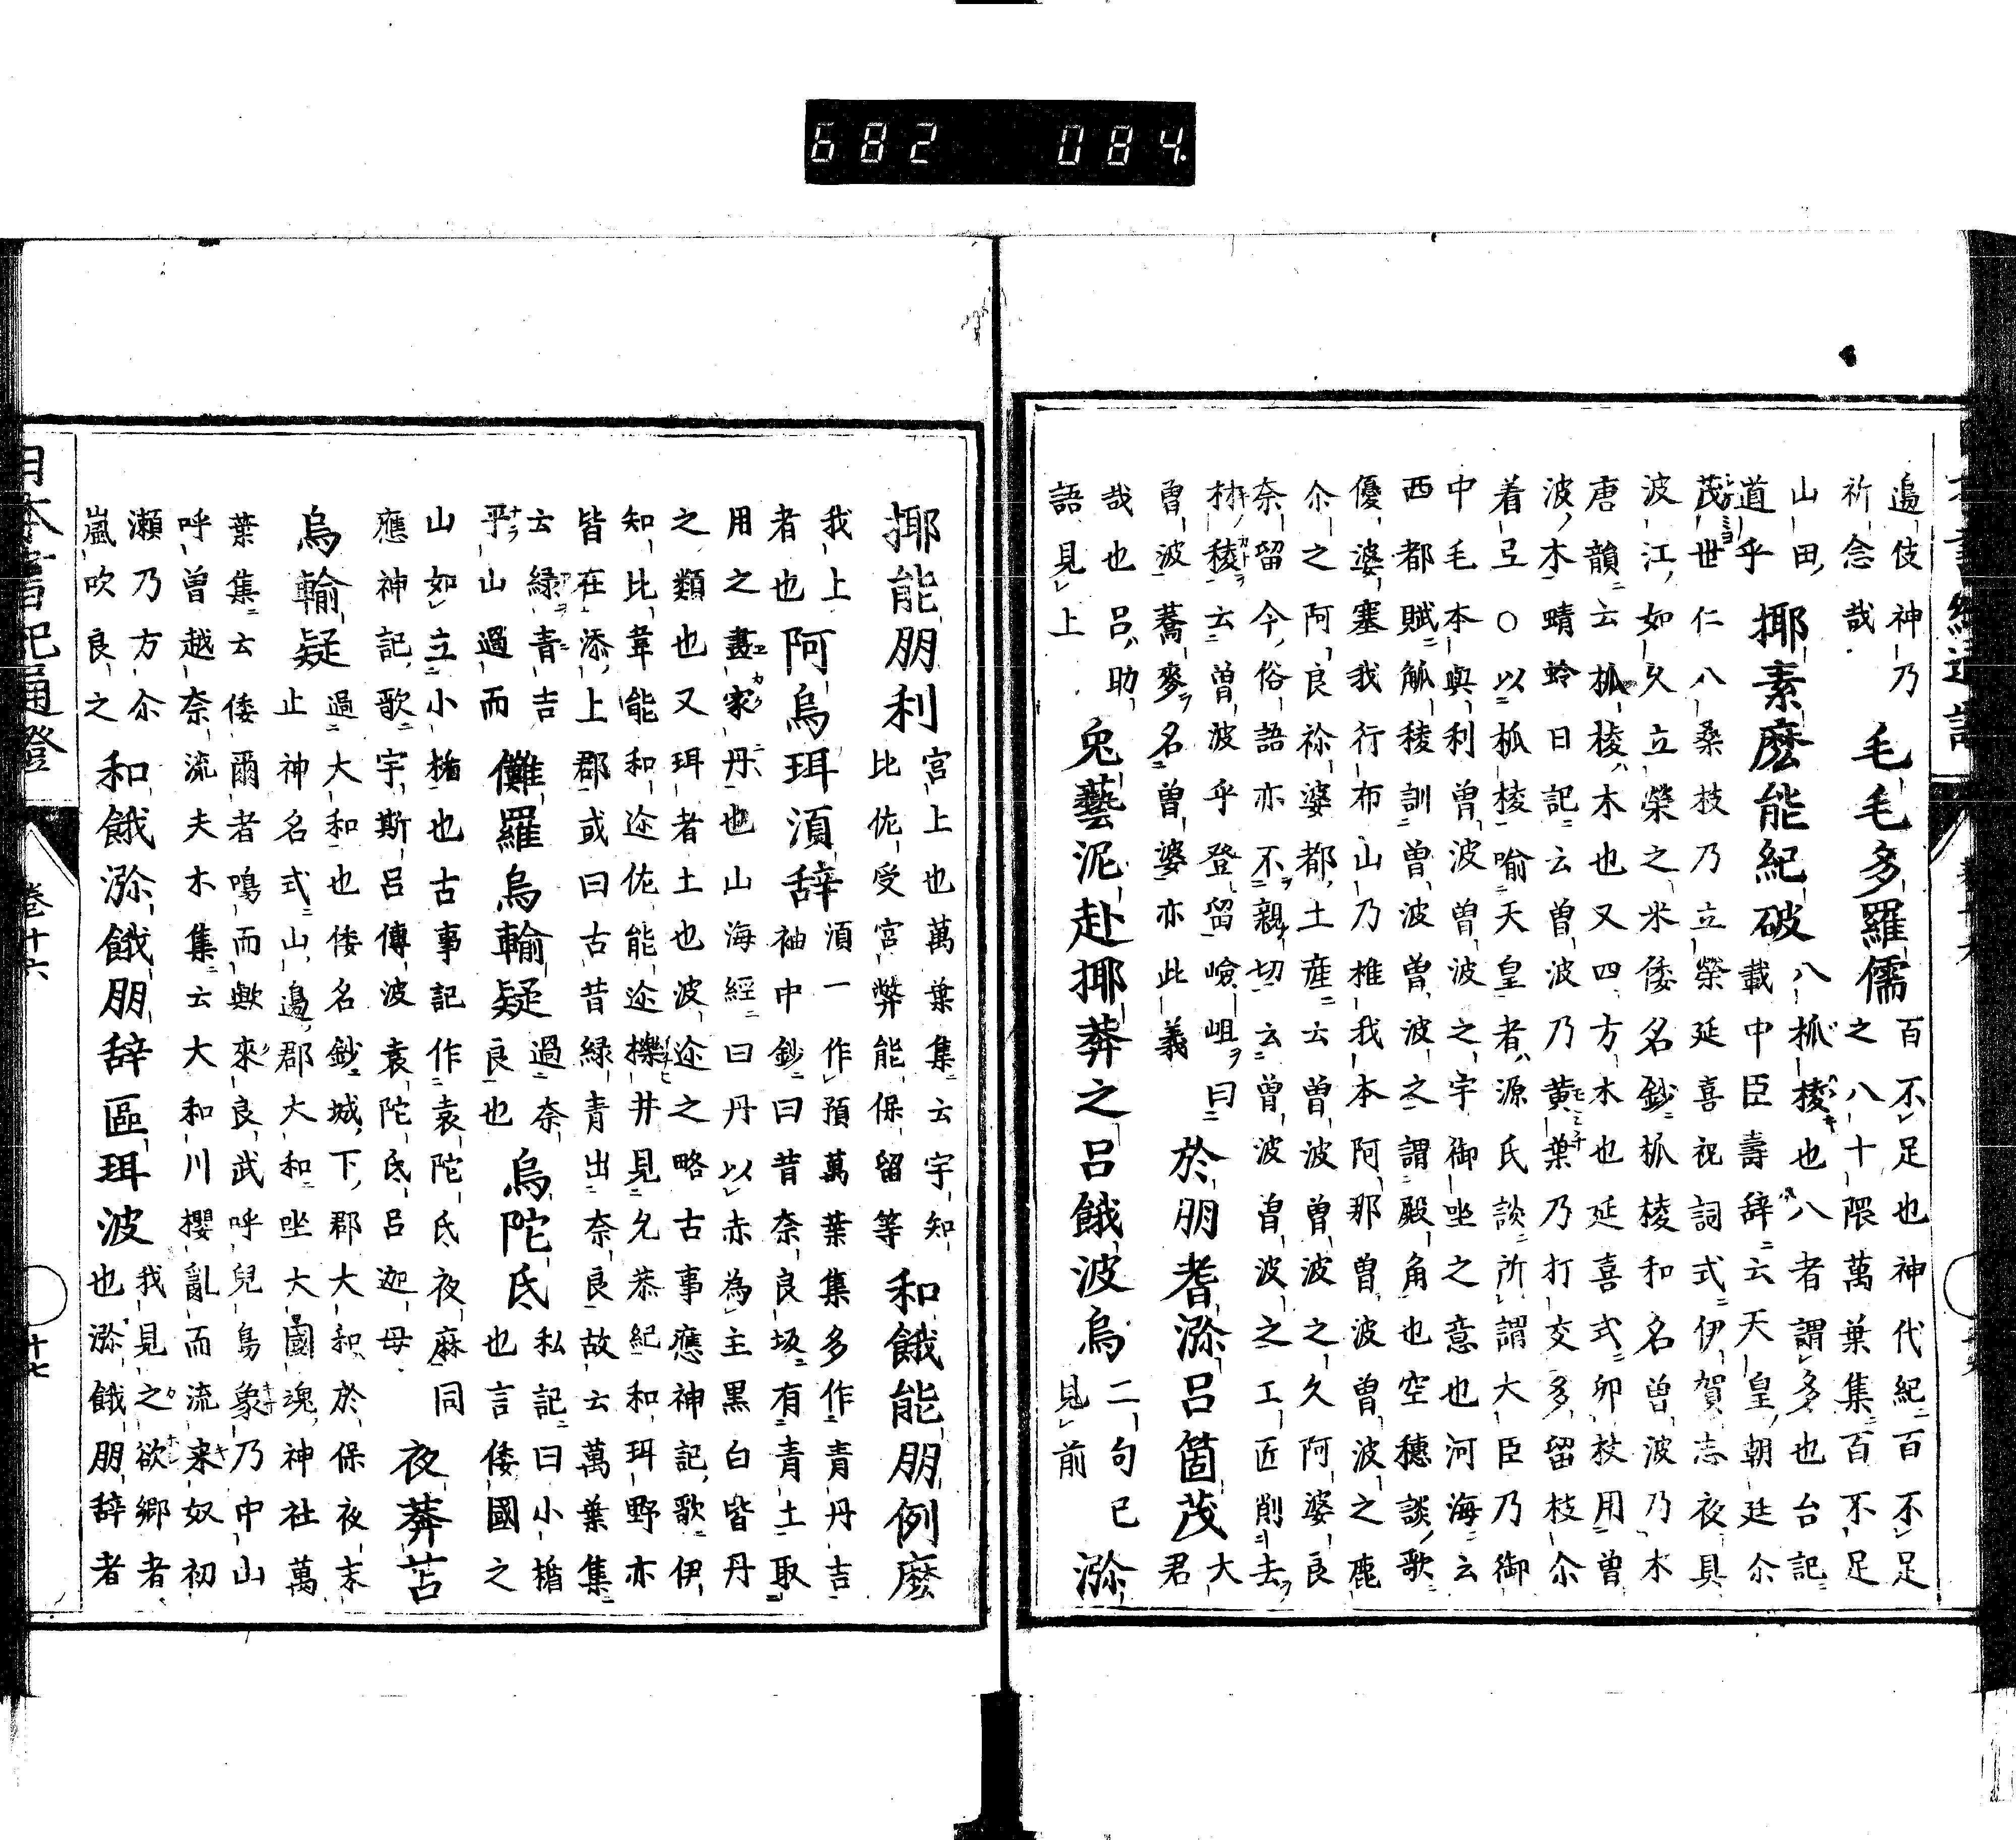 682 084
邉伎神乃 毛毛多羅儒 百不足也神代紀百不足
祈念哉 之八十隈萬葉集百不足
山田道乎 揶素麽能紀破 八柧棱也八者謂多也台記
載中臣壽辞云天皇朝廷尒
茂世仁八桑枝乃立榮延喜祝詞式伊賀志夜具
波江如久立榮之米倭名鈔柧棱和名曾波乃木
唐韻云柧棱木也又四方木也延喜式卯杖用曾
波木蜻蛉日記云曾波乃黄葉乃打交多留枝尒
着弖○以柧棱喻天皇者源氏談所謂大臣乃御
中毛本與利曾波曾波之宇御坐之意也河海云
西都賦觚稜訓曾波曾波之謂殿角也空穗談歌
優婆塞我行布山乃椎我本阿那曾波曾波之鹿
尒之阿良祢婆都土産云曾波曾波之久阿婆良
奈留今俗語亦不親切云曾波曾波之工匠削去
材稜云曾波乎登留嶮岨曰 於朋耆瀰呂箇茂 大
曾波蕎麥名曾婆亦此義 君
哉也呂助 兔藝泥赴揶莽之呂餓波烏 二句已 瀰
語見上 見前
揶能朋利 宮上也萬葉集云宇知 和餓能朋例麽
比佐受宮弊能保留等
我上 阿烏珥湏辞 湏一作預萬葉集多作青丹吉
者也 袖中鈔曰昔奈良坂有青土取
用之畫家丹也山海經曰丹以赤為主黒白皆丹
之類也又珥者土也波迩之略古事應神記歌伊
知比韋能和迩佐能迩櫟井見允恭紀和珥野亦
皆在添上郡或曰古昔緑青出奈良故云萬葉集
云緑青吉 儺羅烏輸疑 過奈 烏陀氐 私記曰小楯
平山過而 良也 也言倭國之
山如立小楯也古事記作袁陀氐夜麻同 夜莽苫
應神記歌宇斯呂傳波袁陀氐呂迦母
烏輸疑 過大和也倭名鈔城下郡大和於保夜末
止神名式山邉郡大和坐大國魂神社萬
葉集云倭爾者鳴而歟來良武呼兒鳥象乃中山
呼曾越奈流夫木集云大和川櫻亂而流来奴初
瀬乃方尒 和餓瀰餓朋辞區珥波 我見之欲郷者
嵐吹良之 也瀰餓朋辞者
日本書紀通證 卷十六 十七